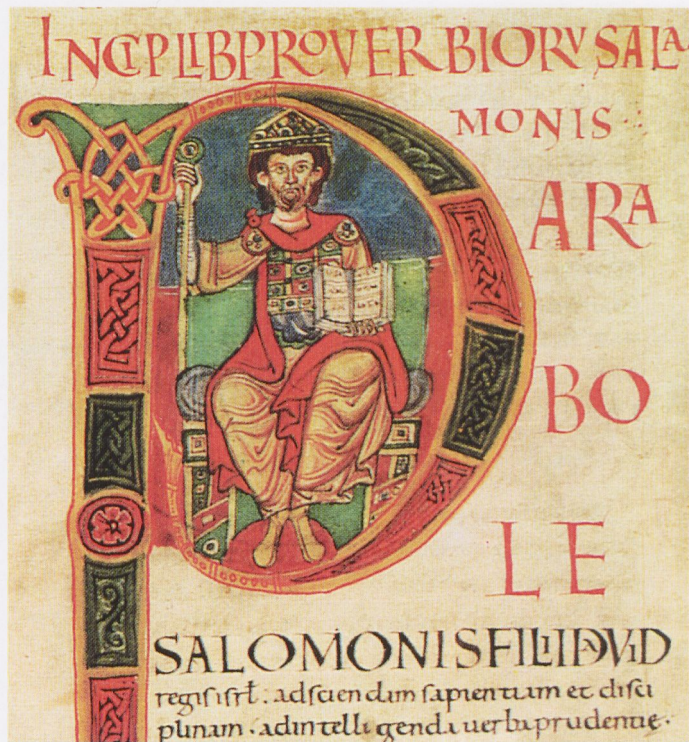 INCIP LIB PROVERBIORV SALA
MONIS
P
ARA
BO
LE
SALOMONIS FILII DAVID
regis isrl̄ : ad sciendam sapientiam et disci
plinam . ad intelligenda uerba prudentie .